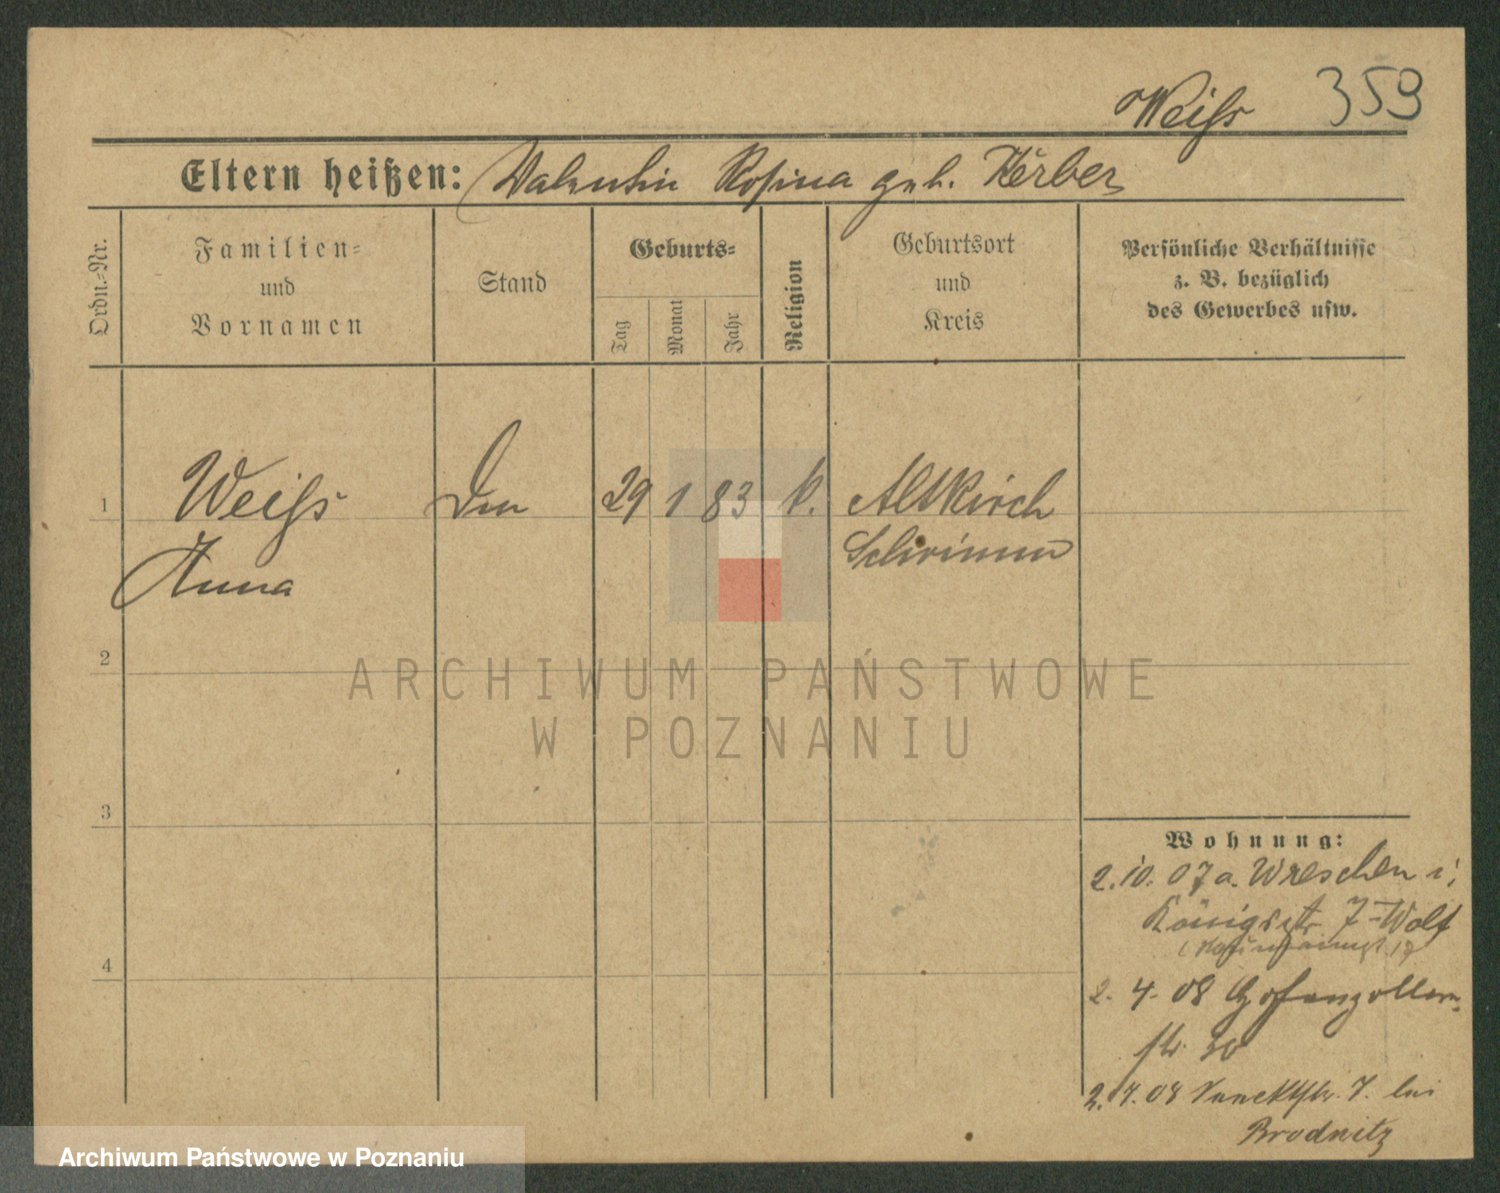 Weiſs 359
Eltern heißen: Valentin Rosina geb. Kerber
Ordn.-Nr.
Familien-
und
Vornamen
Stand
Geburts-
Tag
Monat
Jahr
Religion
Geburtsort
und
Kreis
Persönliche Verhältnisse
z. B. bezüglich
des Gewerbes usw.
1 Weiſs 29 1 83 k. Altkirch
Anna Schrimm
2
3
4
Wohnung:
2. 10. 07 a. Wreschen i/
Königstr 7 Wolf
2. 4. 08 Hohenzollern
str. 30
2. 7. 08 7. bei
Brodnitz
ARCHIWUM PAŃSTWOWE
W POZNANIU
Archiwum Państwowe w Poznaniu